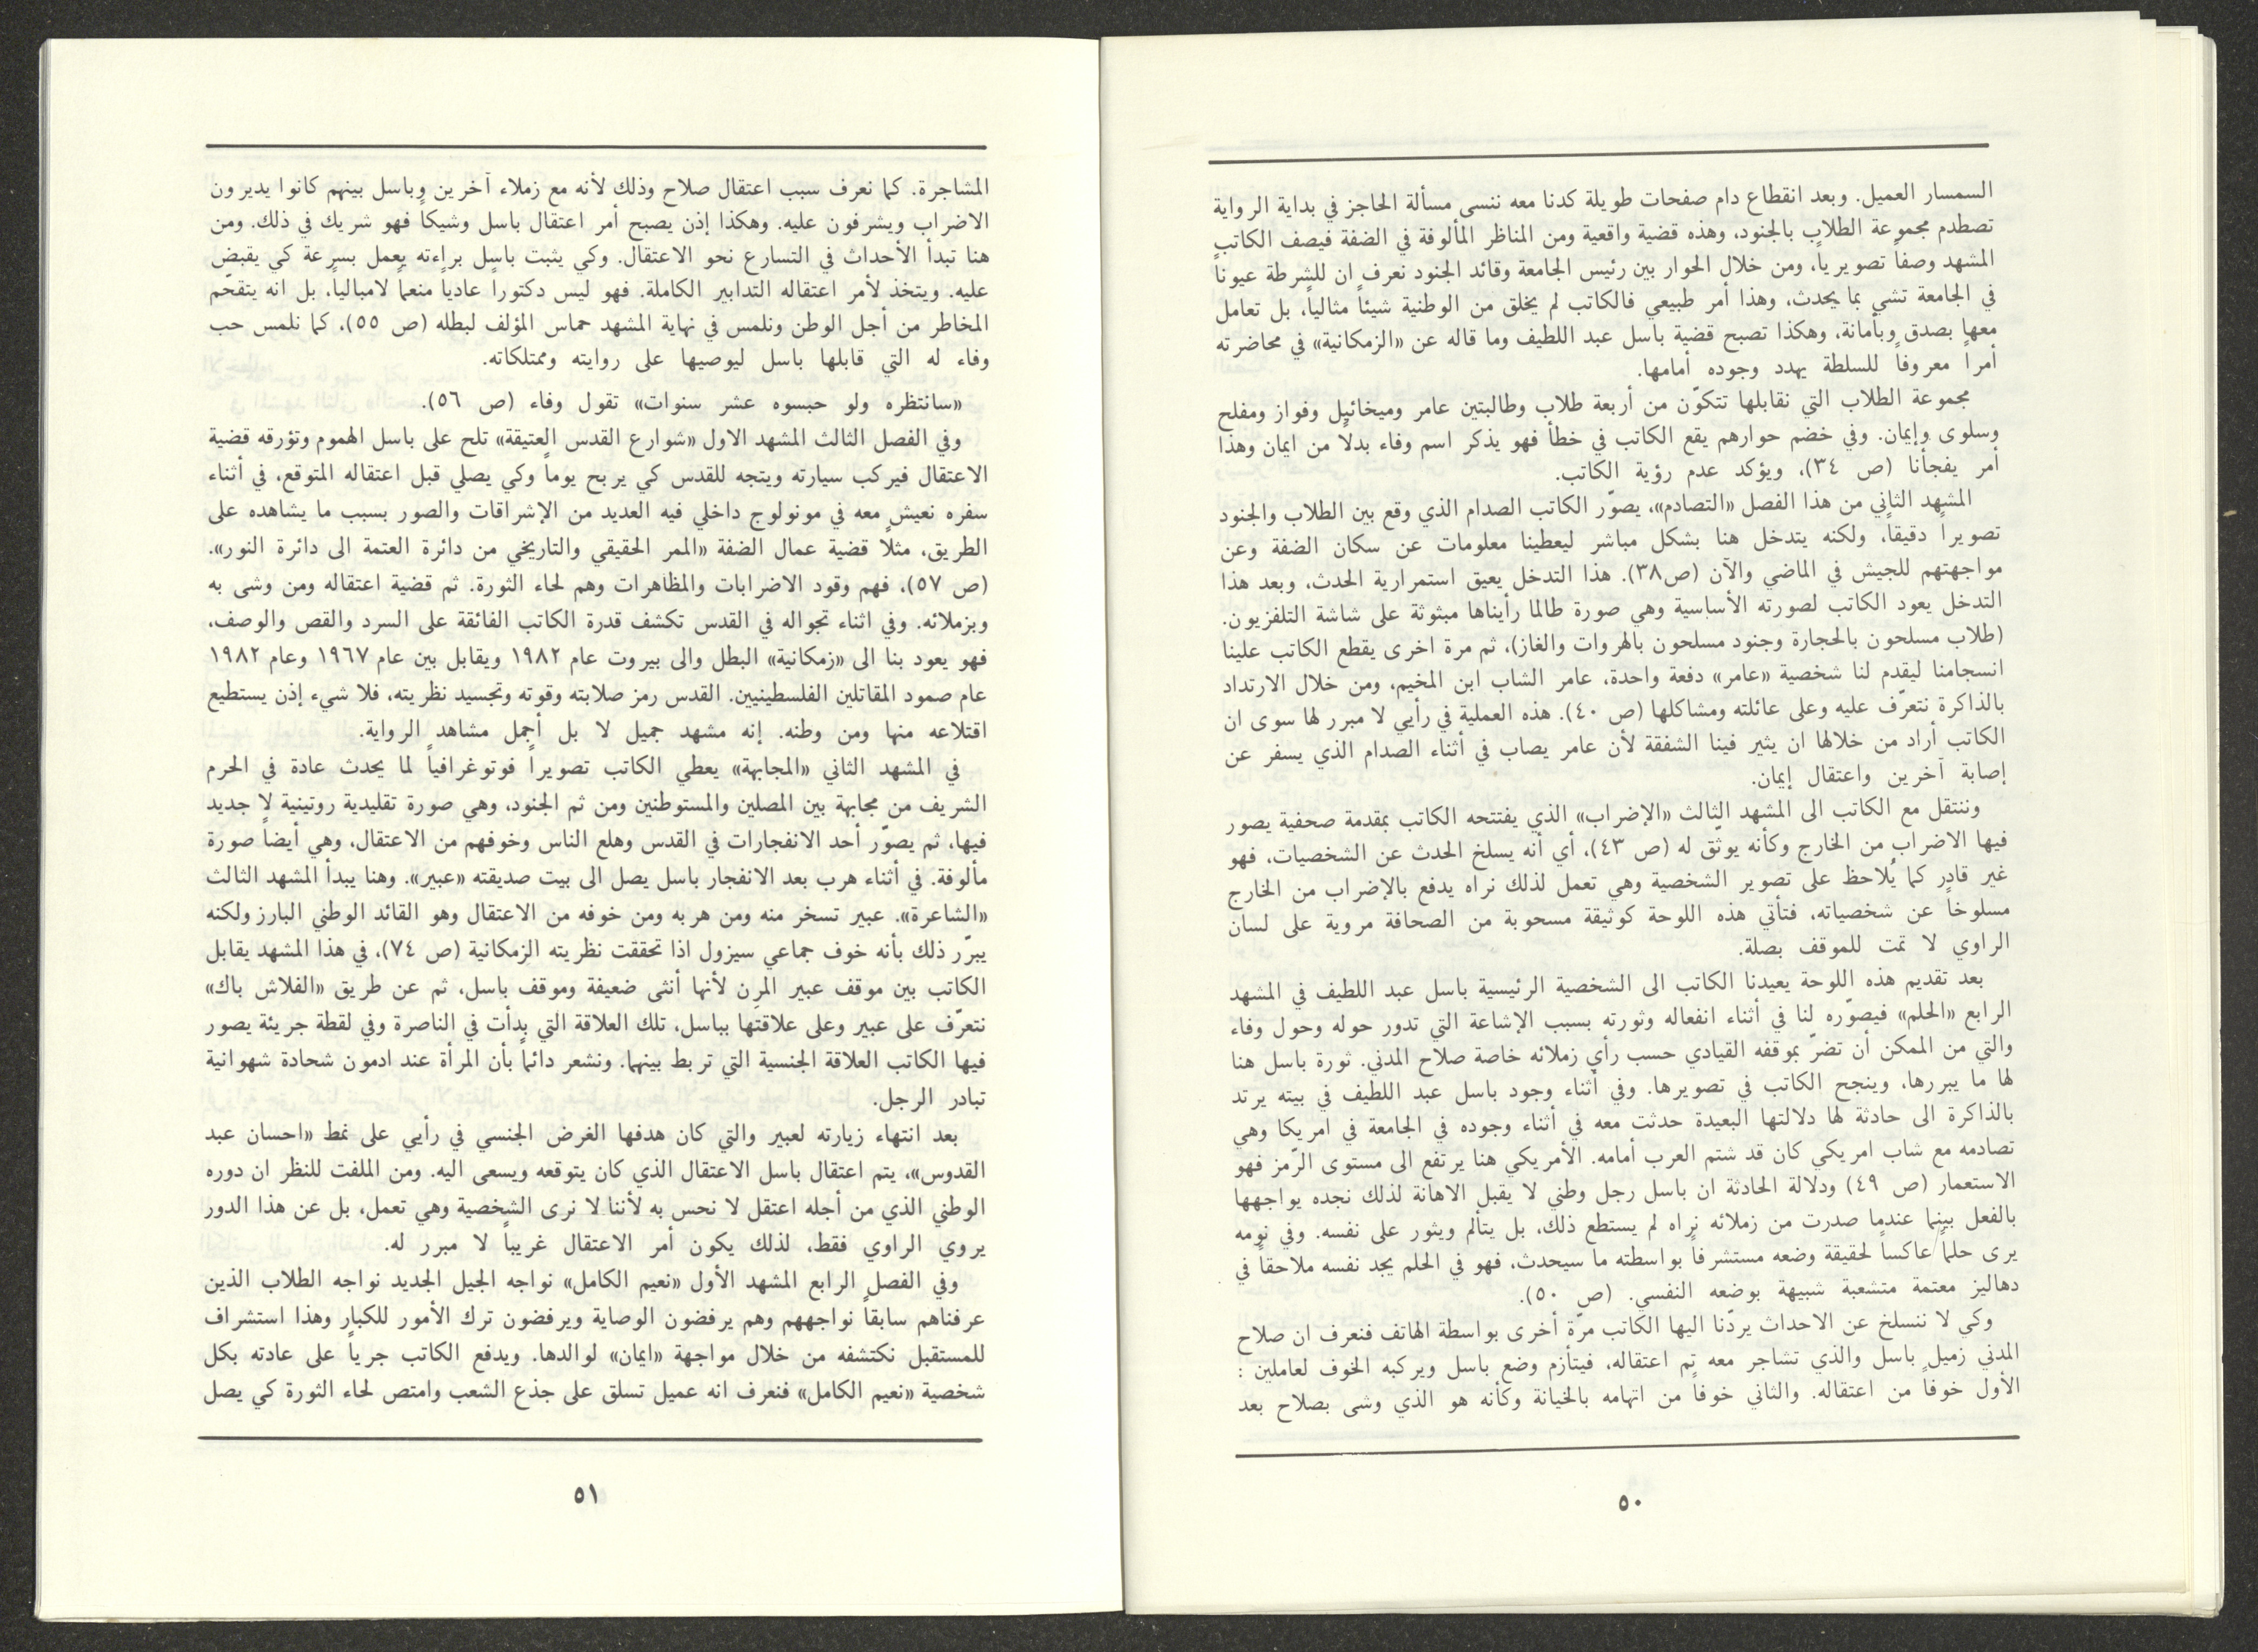 السمسار العميل. وبعد انقطاع دام صفحات طويلة كدنا معه ننسى مسألة الحاجز في بداية الرواية
تصطدم مجموعة الطلاب بالجنود، وهذه قضية واقعية ومن المناظر المألوفة في الضفة فيصف الكاتب
المشهد وصفاً تصويرياً، ومن خلال الحوار بين رئيس الجامعة وقائد الجنود نعرف ان للشرطة عيوناً
في الجامعة تشي بما يحدث، وهذا أمر طبيعي فالكاتب لم يخلق من الوطنية شيئاً مثالياً، بل تعامل
معها بصدق وبأمانة، وهكذا تصبح قضية باسل عبد اللطيف وما قاله عن «الزمكانية» في محاضرته
أمراً معروفاً للسلطة يهدد وجوده أمامها.
مجموعة الطلاب التي نقابلها تتكوّن من أربعة طلاب وطالبتين عامر وميخائيل وفواز ومفلح
وسلوى وإيمان. وفي خضم حوارهم يقع الكاتب في خطأ فهو يذكر اسم وفاء بدلاً من ايمان وهذا
أمر يفجأنا (ص ٣٤)، ويؤكد عدم رؤية الكاتب.
المشهد الثاني من هذا الفصل «التصادم»، يصوّر الكاتب الصدام الذي وقع بين الطلاب والجنود
تصويراً دقيقاً، ولكنه يتدخل هنا بشكل مباشر ليعطينا معلومات عن سكان الضفة وعن
مواجهتهم للجيش في الماضي والآن (ص٣٨). هذا التدخل يعيق استمرارية الحدث، وبعد هذا
التدخل يعود الكاتب لصورته الأساسية وهي صورة طالما رأيناها مبثوثة على شاشة التلفزيون.
(طلاب مسلحون بالحجارة وجنود مسلحون بالهروات والغاز)، ثم مرة اخرى يقطع الكاتب علينا
انسجامنا ليقدم لنا شخصية «عامر» دفعة واحدة، عامر الشاب ابن المخيم، ومن خلال الارتداد
بالذاكرة نتعرّف عليه وعلى عائلته ومشاكلها (ص ٤٠). هذه العملية في رأيي لا مبرر لها سوى ان
الكاتب أراد من خلالها ان يثير فينا الشفقة لأن عامر يصاب في أثناء الصدام الذي يسفر عن
إصابة آخرين واعتقال إيمان.
وننتقل مع الكاتب الى المشهد الثالث «الإضراب» الذي يفتتحه الكاتب بمقدمة صحفية يصور
فيها الاضراب من الخارج وكأنه يوثّق له (ص ٤٣)، أي أنه يسلخ الحدث عن الشخصيات، فهو
غير قادر كما يُلاحظ على تصوير الشخصية وهي تعمل لذلك نراه يدفع بالإضراب من الخارج
مسلوخاً عن شخصياته، فتأتي هذه اللوحة كوثيقة مسحوبة من الصحافة مروية على لسان
الراوي لا تمت للموقف بصلة.
بعد تقديم هذه اللوحة يعيدنا الكاتب الى الشخصية الرئيسية باسل عبد اللطيف في المشهد
الرابع «الحلم» فيصوّره لنا في أثناء انفعاله وثورته بسبب الإشاعة التي تدور حوله وحول وفاء
والتي من الممكن أن تضرّ بموقفه القيادي حسب رأي زملائه خاصة صلاح المدني. ثورة باسل هنا
لها ما يبررها، وينجح الكاتب في تصويرها. وفي أثناء وجود باسل عبد اللطيف في بيته يرتد
بالذاكرة الى حادثة لها دلالتها البعيدة حدثت معه في أثناء وجوده في الجامعة في امريكا وهي
تصادمه مع شاب امريكي كان قد شتم العرب أمامه. الأمريكي هنا يرتفع الى مستوى الرّمز فهو
الاستعمار (ص ٤٩) ودلالة الحادثة ان باسل رجل وطني لا يقبل الاهانة لذلك نجده يواجهها
بالفعل بينما عندما صدرت من زملائه نراه لم يستطع ذلك، بل يتألم ويثور على نفسه. وفي نومه
يرى حلماً عاكساً لحقيقة وضعه مستشرفاً بواسطته ما سيحدث، فهو في الحلم يجد نفسه ملاحقاً في
دهاليز معتمة متشعبة شبيهة بوضعه النفسي. (ص ٥٠).
وكي لا ننسلخ عن الاحداث يردّنا اليها الكاتب مرّة أخرى بواسطة الهاتف فنعرف ان صلاح
المدني زميل باسل والذي تشاجر معه تم اعتقاله، فيتأزم وضع باسل ويركبه الخوف لعاملين :
الأول خوفاً من اعتقاله. والثاني خوفاً من اتهامه بالخيانة وكأنه هو الذي وشى بصلاح بعد
٥٠
المشاجرة. كما نعرف سبب اعتقال صلاح وذلك لأنه مع زملاء آخرين وباسل بينهم كانوا يديرون
الاضراب ويشرفون عليه. وهكذا إذن يصبح أمر اعتقال باسل وشيكاً فهو شريك في ذلك. ومن
هنا تبدأ الأحداث في التسارع نحو الاعتقال. وكي يثبت باسل براءته يعمل بسرعة كي يقبض
عليه. ويتخذ لأمر اعتقاله التدابير الكاملة. فهو ليس دكتوراً عادياً منعماً لامبالياً، بل انه يتقحّم
المخاطر من أجل الوطن ونلمس في نهاية المشهد حماس المؤلف لبطله (ص ٥٥)، كما نلمس حب
وفاء له التي قابلها باسل ليوصيها على روايته وممتلكاته.
«سانتظره ولو حبسوه عشر سنوات» تقول وفاء (ص ٥٦).
وفي الفصل الثالث المشهد الاول «شوارع القدس العتيقة» تلح على باسل الهموم وتؤرقه قضية
الاعتقال فيركب سيارته ويتجه للقدس كي يربح يوماً وكي يصلي قبل اعتقاله المتوقع، في أثناء
سفره نعيش معه في مونولوج داخلي فيه العديد من الإشراقات والصور بسبب ما يشاهده على
الطريق، مثلاً قضية عمال الضفة «الممر الحقيقي والتاريخي من دائرة العتمة الى دائرة النور».
(ص ٥٧)، فهم وقود الاضرابات والمظاهرات وهم لحاء الثورة. ثم قضية اعتقاله ومن وشى به
وبزملائه. وفي اثناء تجواله في القدس تكشف قدرة الكاتب الفائقة على السرد والقص والوصف،
فهو يعود بنا الى «زمكانية» البطل والى بيروت عام ١٩٨٢ ويقابل بين عام ١٩٦٧ وعام ١٩٨٢
عام صمود المقاتلين الفلسطينيين. القدس رمز صلابته وقوته وتجسيد نظريته، فلا شيء إذن يستطيع
اقتلاعه منها ومن وطنه. إنه مشهد جميل لا بل أجمل مشاهد الرواية.
في المشهد الثاني «المجابهة» يعطي الكاتب تصويراً فوتوغرافياً لما يحدث عادة في الحرم
الشريف من مجابهة بين المصلين والمستوطنين ومن ثم الجنود، وهي صورة تقليدية روتينية لا جديد
فيها، ثم يصوّر أحد الانفجارات في القدس وهلع الناس وخوفهم من الاعتقال، وهي أيضاً صورة
مألوفة. في أثناء هرب بعد الانفجار باسل يصل الى بيت صديقته «عبير». وهنا يبدأ المشهد الثالث
«الشاعرة». عبير تسخر منه ومن هربه ومن خوفه من الاعتقال وهو القائد الوطني البارز ولكنه
يبرّر ذلك بأنه خوف جماعي سيزول اذا تحققت نظريته الزمكانية (ص ٧٤)، في هذا المشهد يقابل
الكاتب بين موقف عبير المرِن لأنها أنثى ضعيفة وموقف باسل، ثم عن طريق «الفلاش باك»
نتعرّف على عبير وعلى علاقتها بباسل، تلك العلاقة التي بدأت في الناصرة وفي لقطة جريئة يصور
فيها الكاتب العلاقة الجنسية التي تربط بينهما. ونشعر دائماً بأن المرأة عند ادمون شحادة شهوانية
تبادر الرجل.
بعد انتهاء زيارته لعبير والتي كان هدفها الغرض الجنسي في رأيي على نمط «احسان عبد
القدوس»، يتم اعتقال باسل الاعتقال الذي كان يتوقعه ويسعى اليه. ومن الملفت للنظر ان دوره
الوطني الذي من أجله اعتقل لا نحس به لأننا لا نرى الشخصية وهي تعمل، بل عن هذا الدور
يروي الراوي فقط، لذلك يكون أمر الاعتقال غريباً لا مبرر له.
وفي الفصل الرابع المشهد الأول «نعيم الكامل» نواجه الجيل الجديد نواجه الطلاب الذين
عرفناهم سابقاً نواجههم وهم يرفضون الوصاية ويرفضون ترك الأمور للكبار وهذا استشراف
للمستقبل نكتشفه من خلال مواجهة «ايمان» لوالدها. ويدفع الكاتب جرياً على عادته بكل
شخصية «نعيم الكامل» فنعرف انه عميل تسلق على جذع الشعب وامتص لحاء الثورة كي يصل
٥١